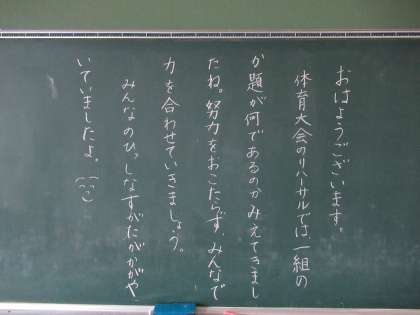 おはようございます。
体育大会のリハーサルでは一組の
か題が何であるのかみえてきまし
たね。努力をおこたらず、みんなで
力を合わせていきましょう。
みんなのひっしなすがたがかがや
いていましたよ。